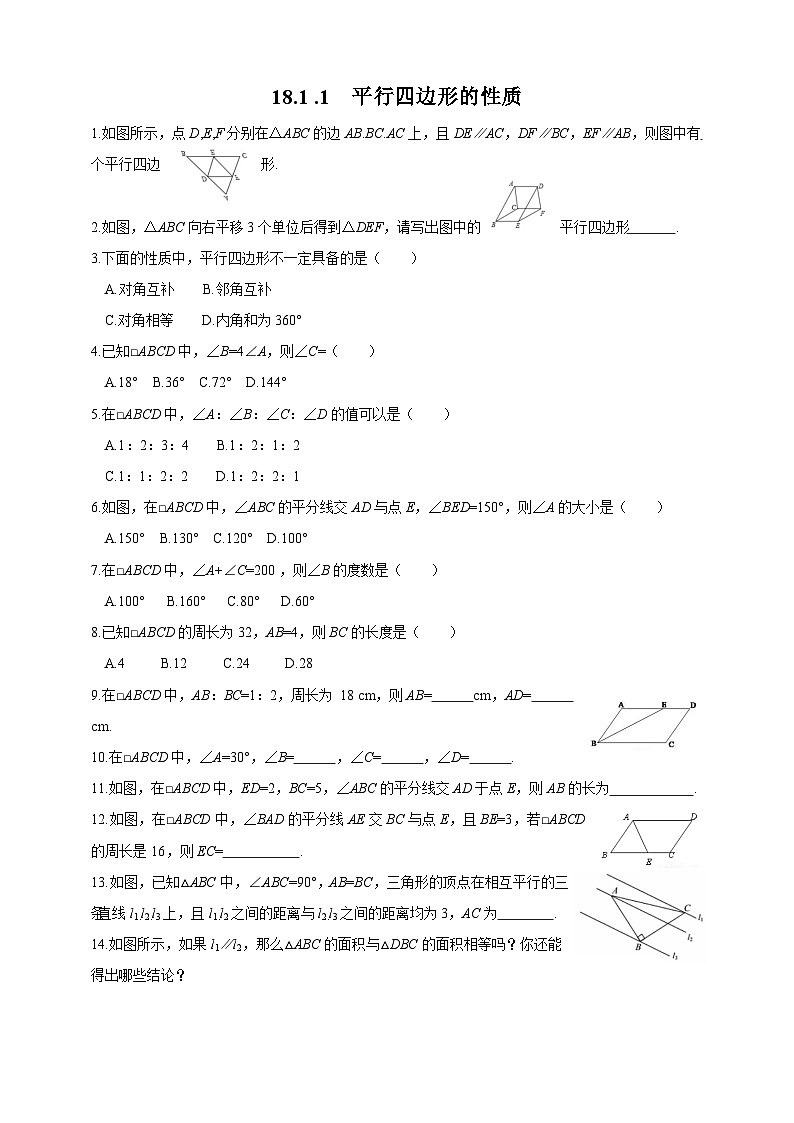 18.1 .1 平行四边形的性质
1.如图所示，点D,E,F分别在△ABC的边AB.BC.AC上，且DE∥AC，DF∥BC，EF∥AB，则图中有_
个平行四边 形.
B E C
D F
A
2.如图，△ABC向右平移3个单位后得到△DEF，请写出图中的 平行四边形______.
A D
C F
B E
3.下面的性质中，平行四边形不一定具备的是（ ）
A.对角互补 B.邻角互补
C.对角相等 D.内角和为360°
4.已知□ABCD中，∠B=4∠A，则∠C=（ ）
A.18° B.36° C.72° D.144°
5.在□ABCD中，∠A：∠B：∠C：∠D的值可以是（ ）
A.1：2：3：4 B.1：2：1：2
C.1：1：2：2 D.1：2：2：1
6.如图，在□ABCD中，∠ABC的平分线交AD与点E，∠BED=150°，则∠A的大小是（ ）
A.150° B.130° C.120° D.100°
7.在□ABCD中，∠A+∠C=200 ，则∠B的度数是（ ）
A.100° B.160° C.80° D.60°
8.已知□ABCD的周长为32，AB=4，则BC的长度是（ ）
A.4 B.12 C.24 D.28
9.在□ABCD中，AB：BC=1：2，周长为 18 cm，则AB=______cm，AD=______
cm.
A E D
B C
10.在□ABCD中，∠A=30°，∠B=______，∠C=______，∠D=______.
11.如图，在□ABCD中，ED=2，BC=5，∠ABC的平分线交AD于点E，则AB的长为____________.
12.如图，在□ABCD中，∠BAD的平分线AE交BC与点E，且BE=3，若□ABCD
的周长是16，则EC=___________.
A D
B E C
13.如图，已知△ABC中，∠ABC=90°，AB=BC，三角形的顶点在相互平行的三
条直线l₁l₂l₃上，且l₁l₂之间的距离与l₂l₃之间的距离均为3，AC为________.
A C l₁
l₂
B l₃
14.如图所示，如果l₁∥l₂，那么△ABC的面积与△DBC的面积相等吗？你还能
得出哪些结论？